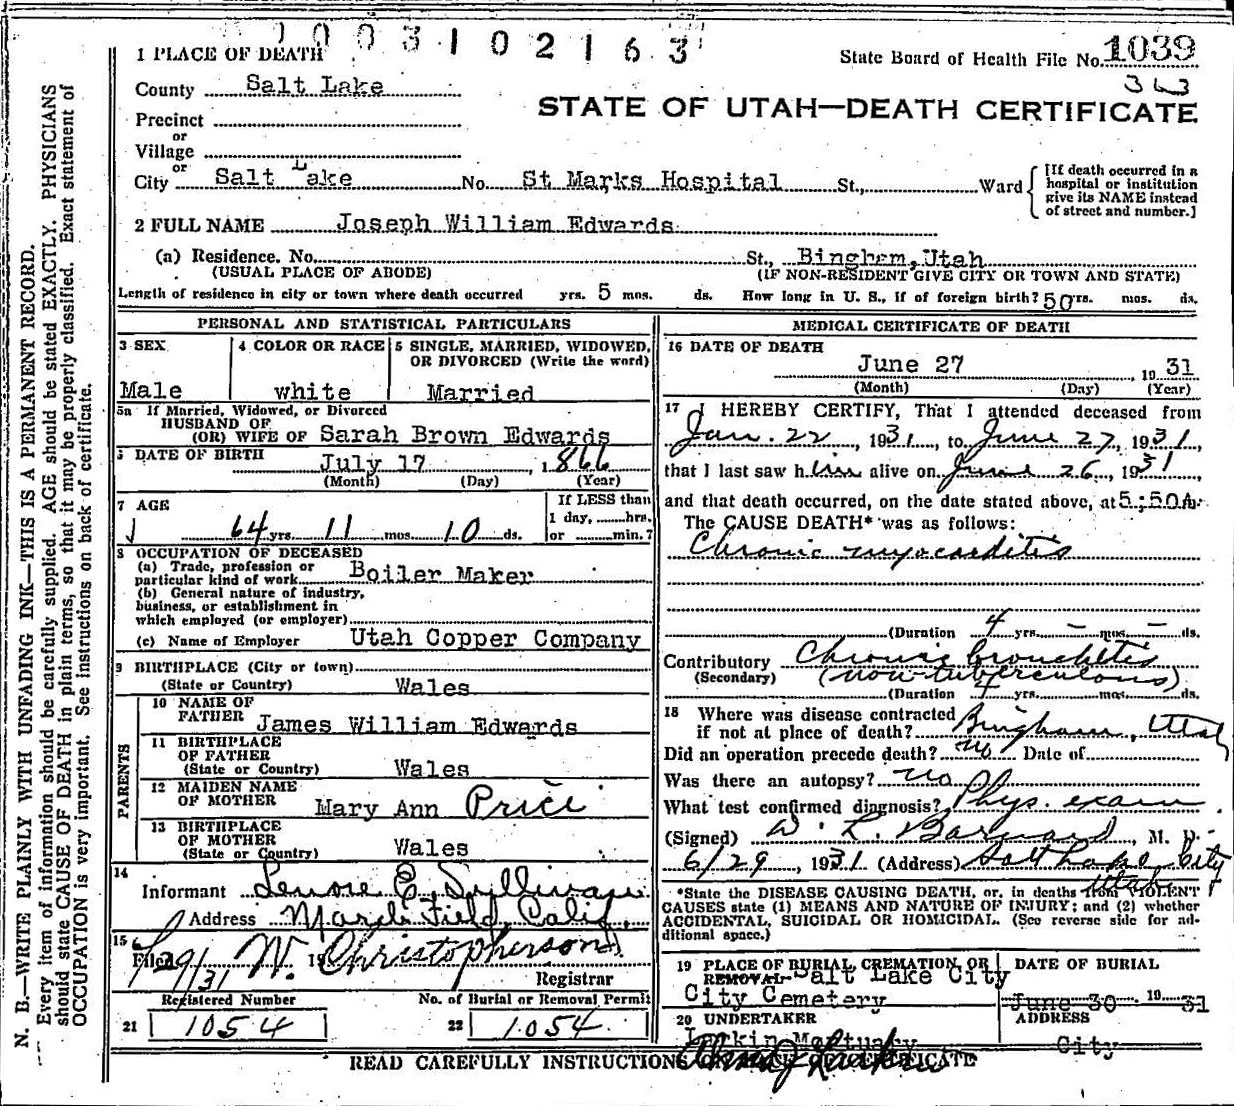 1003102163
1 PLACE OF DEATH
State Board of Health File No. 1039
363
County Salt Lake
STATE OF UTAH—DEATH CERTIFICATE
Precinct
or
Village
or
City Salt Lake No. St Marks Hospital St., Ward
[If death occurred in a hospital or institution give its NAME instead of street and number.]
2 FULL NAME Joseph William Edwards
(a) Residence. No. St., Bingham, Utah
(USUAL PLACE OF ABODE) (IF NON-RESIDENT GIVE CITY OR TOWN AND STATE)
Length of residence in city or town where death occurred yrs. 5 mos. ds. How long in U. S., if of foreign birth? 50 yrs. mos. ds.
PERSONAL AND STATISTICAL PARTICULARS
3 SEX
Male
4 COLOR OR RACE
white
5 SINGLE, MARRIED, WIDOWED, OR DIVORCED (Write the word)
Married
5a If Married, Widowed, or Divorced
HUSBAND OF
(OR) WIFE OF Sarah Brown Edwards
6 DATE OF BIRTH July 17, 1866
(Month) (Day) (Year)
7 AGE
64 yrs. 11 mos. 10 ds.
If LESS than
1 day, hrs.
or min.?
8 OCCUPATION OF DECEASED
(a) Trade, profession or
particular kind of work Boiler Maker
(b) General nature of industry,
business, or establishment in
which employed (or employer)
(c) Name of Employer Utah Copper Company
9 BIRTHPLACE (City or town)
(State or Country) Wales
PARENTS
10 NAME OF
FATHER James William Edwards
11 BIRTHPLACE
OF FATHER
(State or Country) Wales
12 MAIDEN NAME
OF MOTHER Mary Ann Price
13 BIRTHPLACE
OF MOTHER
(State or Country) Wales
14
Informant Lenore E. Sullivan
Address March Field, Calif.
15
Filed 6/29/31 19 W. Christopherson
Registrar
Registered Number
21 1054
No. of Burial or Removal Permit
22 1054
MEDICAL CERTIFICATE OF DEATH
16 DATE OF DEATH
June 27, 1931
(Month) (Day) (Year)
17 I HEREBY CERTIFY, That I attended deceased from
Jan. 22, 1931, to June 27, 1931,
that I last saw him alive on June 26, 1931,
and that death occurred, on the date stated above, at 5:50A.
The CAUSE DEATH* was as follows:
Chronic myocarditis
(Duration 4 yrs. – mos. – ds.
Contributory Chronic bronchitis
(Secondary) (non-tuberculous)
(Duration 4 yrs. mos. ds.
18 Where was disease contracted
if not at place of death? Bingham, Utah
Did an operation precede death? no Date of
Was there an autopsy? no
What test confirmed diagnosis? Phys. exam
(Signed) D. L. Barnard M. D.
6/29, 1931 (Address) Salt Lake City
Utah
*State the DISEASE CAUSING DEATH, or, in deaths from VIOLENT
CAUSES state (1) MEANS AND NATURE OF INJURY; and (2) whether
ACCIDENTAL, SUICIDAL OR HOMICIDAL. (See reverse side for ad-
ditional space.)
19 PLACE OF BURIAL CREMATION OR
REMOVAL Salt Lake City
City Cemetery
DATE OF BURIAL
June 30 1931
20 UNDERTAKER
Larkin Mortuary
ADDRESS
City
READ CAREFULLY INSTRUCTIONS ON BACK OF CERTIFICATE
N. B.—WRITE PLAINLY WITH UNFADING INK—THIS IS A PERMANENT RECORD.
Every item of information should be carefully supplied. AGE should be stated EXACTLY. PHYSICIANS
should state CAUSE OF DEATH in plain terms, so that it may be properly classified. Exact statement of
OCCUPATION is very important. See instructions on back of certificate.